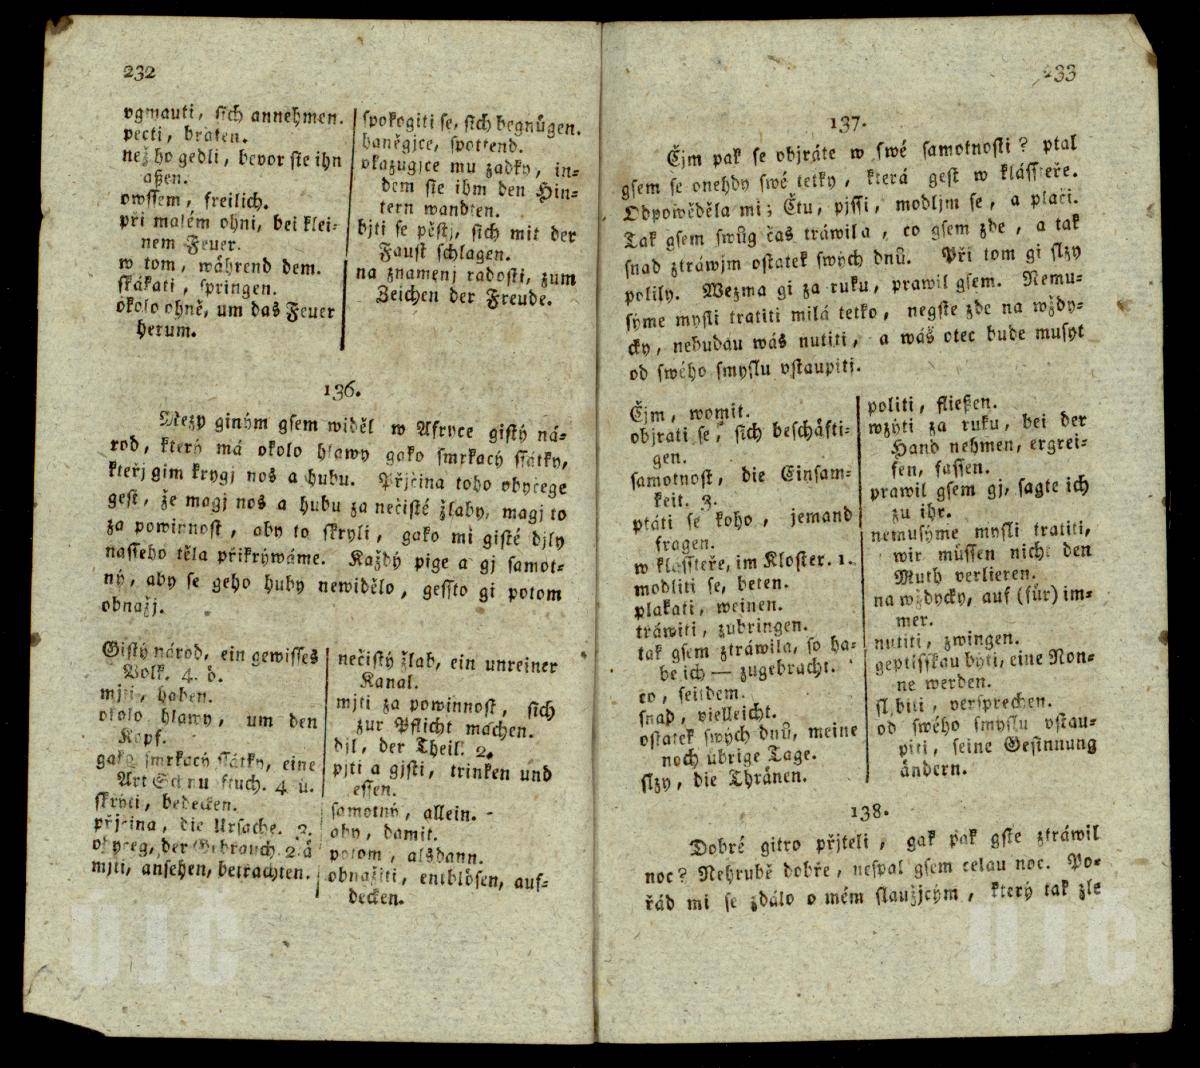 232
vgmauti, sich annehmen.
pecti, braten.
než ho gedli, bevor sie ihn
aßen.
owssem, freilich.
při malém ohni, bei klei-
nem Feuer.
w tom, während dem.
skákati, springen.
okolo ohně, um das Feuer
herum.
spokogiti se, sich begnügen.
haněgjce, spottend.
okazugjce mu zadky, in-
dem sie ihm den Hin-
tern wandten.
bjti se pěstj, sich mit der
Faust schlagen.
na znamenj radosti, zum
Zeichen der Freude.
136.
Mezy giným gsem widěl w Afryce gistý ná-
rod, který má okolo hlawy gako smrkacý ssátky,
kteřj gim krygj nos a hubu. Přjčina toho obyčege
gest, že magj nos a hubu za nečisté žlaby, magj to
za powinnost, aby to skryli, gako mi gisté djly
nasseho těla přikrýwáme. Každý pige a gj samot-
ný, aby se geho huby newidělo, gessto gi potom
obnažj.
Gistý národ, ein gewisses
Volk. 4. d.
mjti, haben.
okolo hlawy, um den
Kopf.
gako smrkacý ssátky, eine
Art Schnupftuch. 4. ü.
skrýti, bedecken.
přjčina, die Ursache. 3.
obyčeg, der Gebrauch. 2. ä
mjti, ansehen, betrachten.
nečistý žlab, ein unreiner
Kanal.
mjti za powinnost, sich
zur Pflicht machen.
djl, der Theil. 2.
pjti a gjsti, trinken und
essen.
samotný, allein.
aby, damit.
potom, alsdann.
obnažiti, entblösen, auf-
decken.
233
137.
Čjm pak se objráte w swé samotnosti? ptal
gsem se onehdy swé tetky, která gest w klássteře.
Odpowěděla mi; Čtu, pjssi, modljm se, a plači.
Tak gsem swůg čas tráwila, co gsem zde, a tak
snad ztráwjm ostatek swých dnů. Při tom gi slzy
polily. Wezma gi za ruku, prawil gsem. Nemu-
sýme mysli tratiti milá tetko, negste zde na wždy-
cky, nebudau wás nutiti, a wáš otec bude musyt
od swého smyslu vstaupiti.
Čjm, womit.
objrati se, sich beschäfti-
gen.
samotnost, die Einsam-
keit. 3.
ptáti se koho, jemand
fragen.
w klássteře, im Kloster. 1.
modliti se, beten.
plakati, weinen.
tráwiti, zubringen.
tak gsem ztráwila, so ha-
be ich — zugebracht.
co, seitdem.
snad, vielleicht.
ostatek swých dnů, meine
noch übrige Tage.
slzy, die Thränen.
politi, fließen.
wzýti za ruku, bei der
Hand nehmen, ergrei-
fen, fassen.
prawil gsem gj, sagte ich
zu ihr.
nemusýme mysli tratiti,
wir müssen nicht den
Muth verlieren.
na wždycky, auf (für) im-
mer.
nutiti, zwingen.
geptisskau býti, eine Non-
ne werden.
sljbiti, versprechen.
od swého smyslu vstau-
piti, seine Gesinnung
ändern.
138.
Dobré gitro přjteli, gak pak gste ztráwil
noc? Nehrubě dobře, nespal gsem celau noc. Po-
řád mi se zdálo o mém slaužjcým, který tak zle